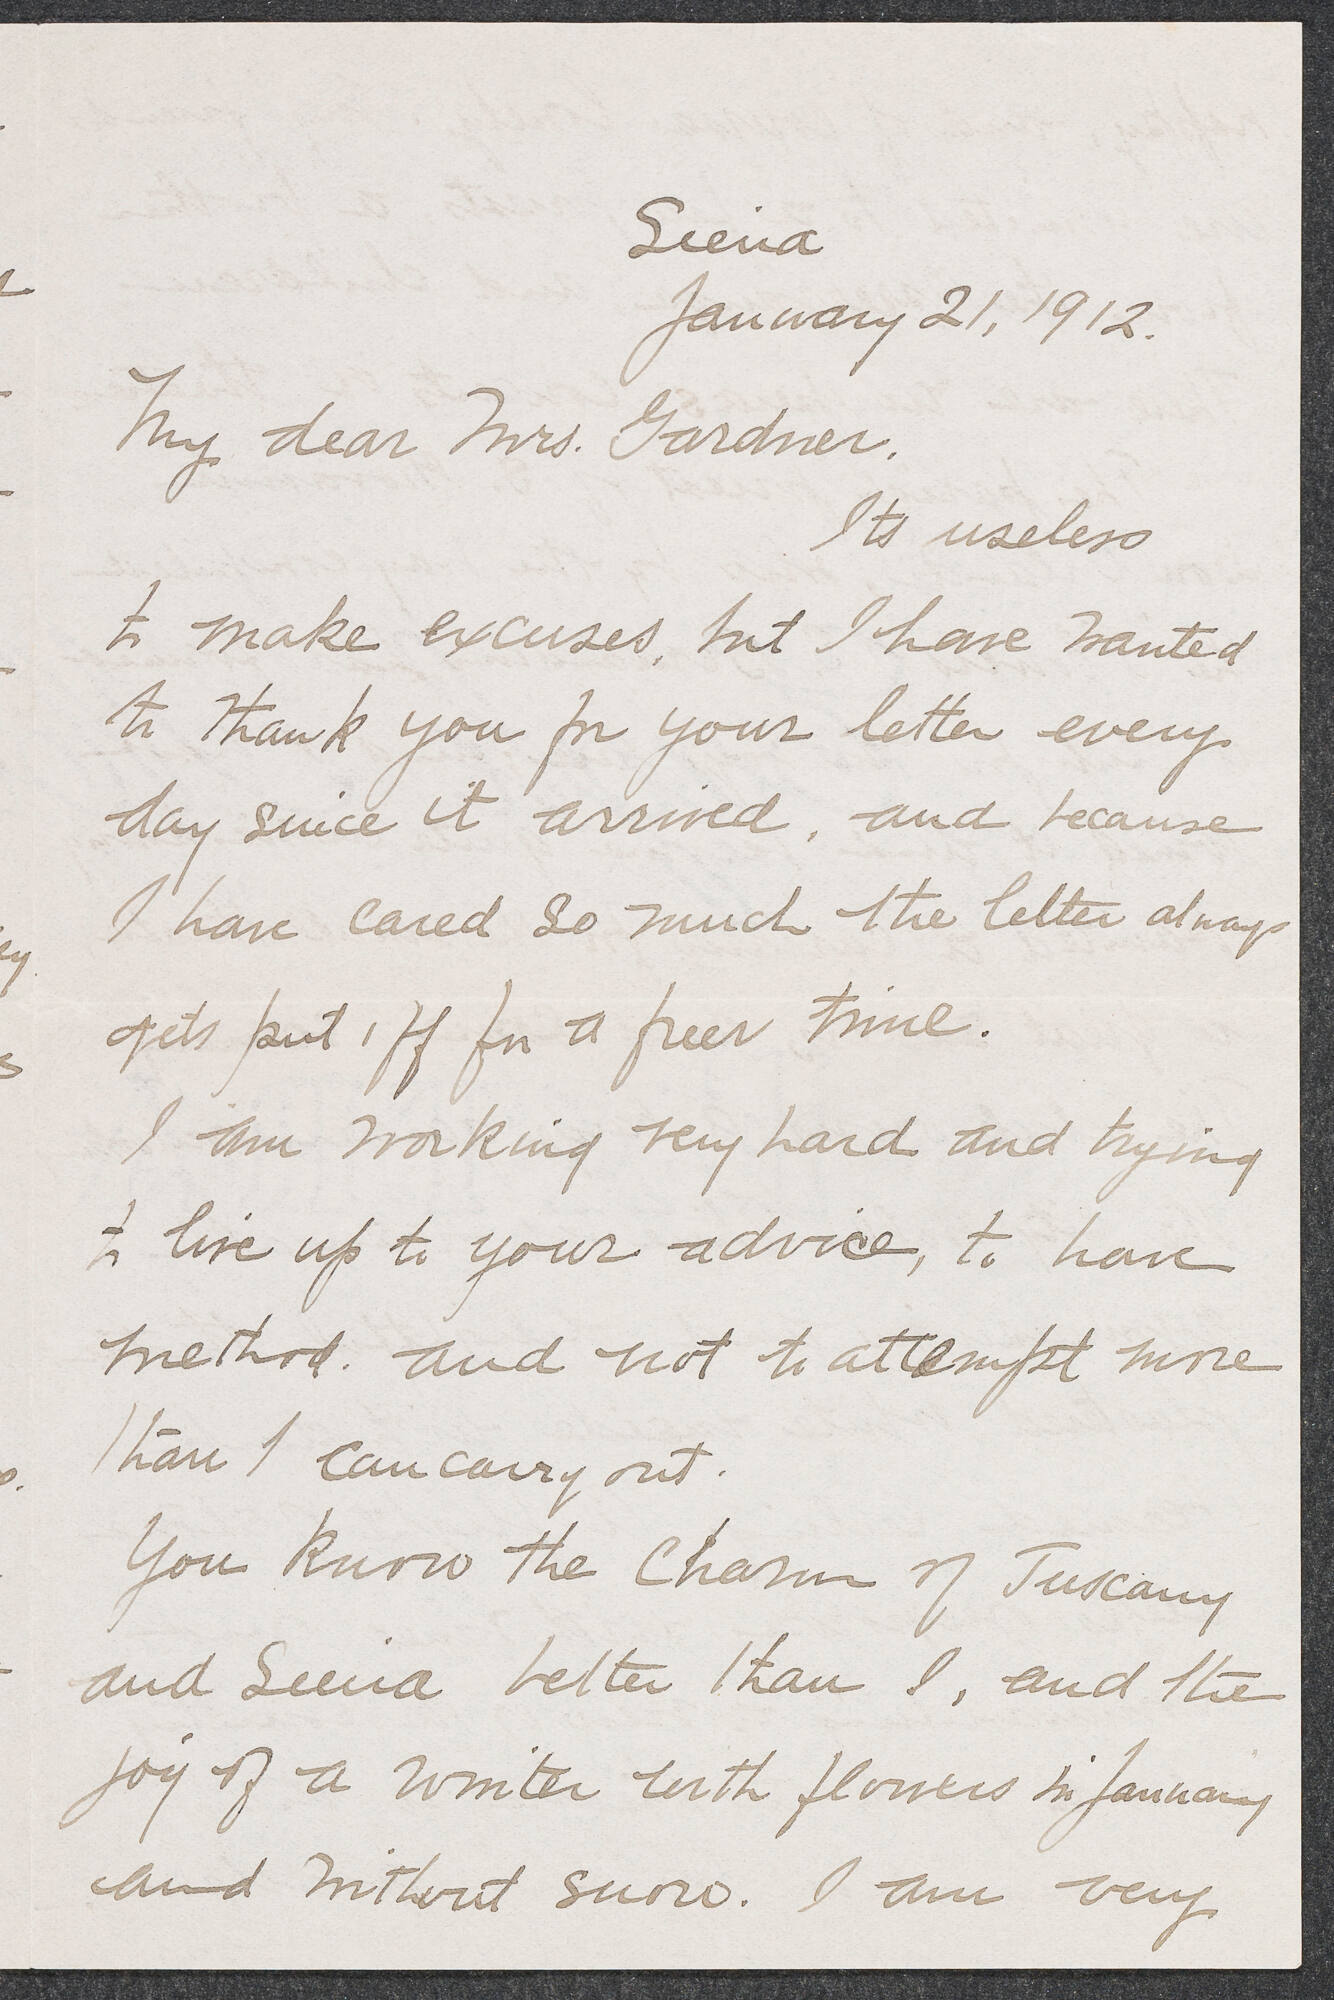 Siena
January 21, 1912.
My dear Mrs. Gardner,
Its useless
to make excuses, but I have wanted
to thank you for your letter every
day since it arrived, and because
I have cared so much the letter always
gets put off for a freer time.
I am working very hard and trying
to live up to your advice, to have
method. and not to attempt more
than I can carry out.
You know the charm of Tuscany
and Siena better than I, and the
joy of a winter with flowers in January
and without snow. I am very